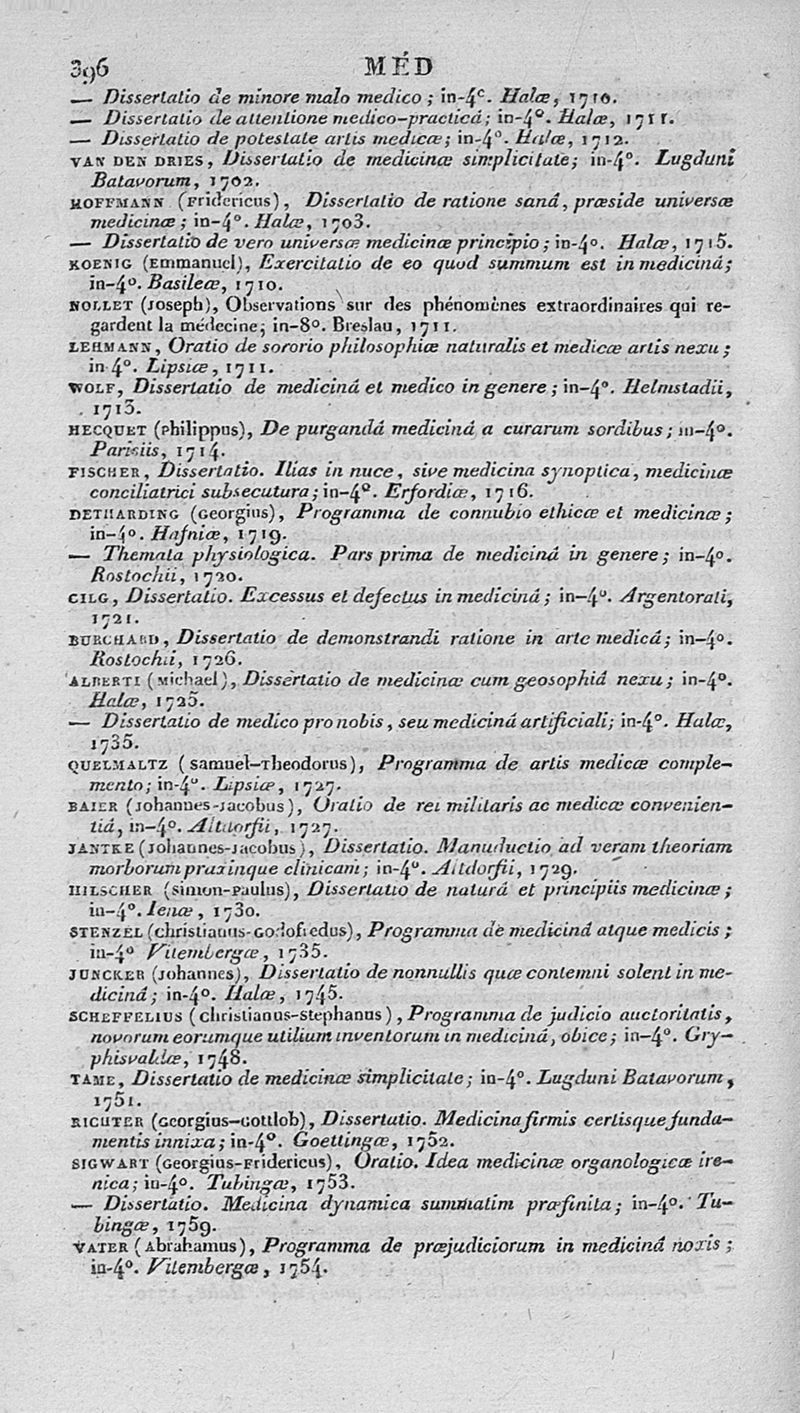 396 MÉD
— Dissertatio de minore malo medico ; in-4°. Halæ, 1710.
— Dissertatio de attentione medico-practicá ; in-4°. Halæ, 1711.
— Dissertatio de potestate artis medicæ ; in-4°. Halæ, 1712.
VAN DEN DRIES, Dissertatio de medicinæ simplicitate; in-4°. Lugduni
Batavorum, 1702.
HOFFMANN (Fridericus), Dissertatio de ratione saná, præside universæ
medicinæ ; in-4°. Halæ, 1703.
— Dissertatio de vero universæ medicinæ principio ; in-4°. Halæ, 1715.
KOENIG (Emmanuel), Exercitatio de eo quod summum est in mediciná;
in-4°. Basileæ, 1710.
NOLLET (Joseph), Observations sur des phénomènes extraordinaires qui re-
gardent la médecine; in-8°. Breslau, 1711.
LEHMANN, Oratio de sororio philosophiæ naturalis et medicæ artis nexu ;
in-4°. Lipsiæ, 1711.
WOLF, Dissertatio de mediciná et medico in genere ; in-4°. Helmstadii,
1713.
HECQUET (Philippus), De purgandá mediciná a curarum sordibus ; in-4°.
Parisiis, 1714.
FISCHER, Dissertatio. Ilias in nuce, sive medicina synoptica, medicinæ
conciliatrici subsecutura ; in-4°. Erfordiæ, 1716.
DETHARDING (Georgius), Programma de connubio ethicæ et medicinæ ;
in-4°. Hafniæ, 1719.
— Themata physiologica. Pars prima de mediciná in genere ; in-4°.
Rostochii, 1720.
CILG, Dissertatio. Excessus et defectus in mediciná ; in-4°. Argentorati,
1721.
BURCHARD, Dissertatio de demonstrandi ratione in arte medicá ; in-4°.
Rostochii, 1726.
ALBERTI (Michael), Dissertatio de medicinæ cum geosophiá nexu ; in-4°.
Halæ, 1725.
— Dissertatio de medico pro nobis, seu mediciná artificiali; in-4°. Halæ,
1735.
QUELMALTZ (Samuel-Theodorus), Programma de artis medicæ comple-
mento; in-4°. Lipsiæ, 1727.
BAIER (Johannes-Jacobus), Oratio de rei militaris ac medicæ convenien-
tiá, in-4°. Altdorfii, 1727.
JANTKE (Johannes-Jacobus), Dissertatio. Manuductio ad veram theoriam
morborum praxinque clinicam ; in-4°. Altdorfii, 1729.
HILSCHER (Simon-Paulus), Dissertatio de naturá et principiis medicinæ ;
in-4°. Ienæ, 1730.
STENZEL (Christianus-Godofredus), Programma de mediciná atque medicis ;
in-4° Vitembergæ, 1735.
JUNCKER (Johannes), Dissertatio de nonnullis quæ contemni solent in me-
diciná ; in-4°. Halæ, 1745.
SCHEFFELIUS (Christianus-Stephanus), Programma de judicio auctoritatis,
novorum eorumque utilium inventorum in mediciná, obice ; in-4°. Gry-
phisvaldæ, 1748.
TAME, Dissertatio de medicinæ simplicitate ; in-4°. Lugduni Batavorum,
1751.
RICHTER (Georgius-Gottlob), Dissertatio. Medicina firmis certisque funda-
mentis innixa ; in-4°. Goettingæ, 1752.
SIGWART (Georgius-Fridericus), Oratio. Idea medicinæ organologicæ ire-
nica ; in-4°. Tubingæ, 1753.
— Dissertatio. Medicina dynamica summatim præfinita ; in-4°. Tu-
bingæ, 1759.
VATER (Abrahamus), Programma de præjudiciorum in mediciná noxis ;
in-4°. Vitembergæ, 1754.